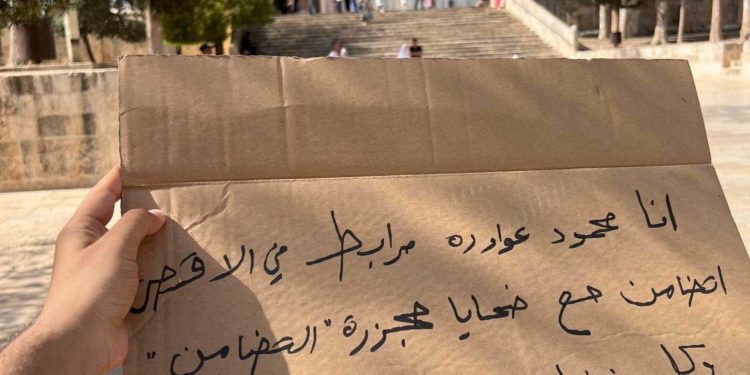 انا محمود عواوده مرابط في الاقصى
اتضامن مع ضحايا مجزرة "التضامن"
وكل